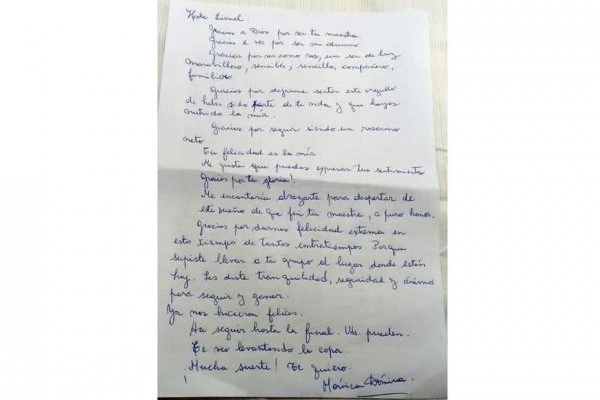 Hola Lionel:
Gracias a Dios por ser tu maestra.
Gracias a vos por ser mi alumno.
Gracias por ser como sos, un ser de luz
maravilloso, sensible, sencillo, compañero,
familiero.
Gracias por dejarme sentir este orgullo
de haber sido parte de tu vida y que hayas
nutrido la mía.
Gracias por seguir siendo un rosarino
neto.
Tu felicidad es la mía.
Me gusta que puedas expresar tus sentimientos
Gracias por tu gloria!
Me encantaría abrazarte para despertar de
este sueño de que fui tu maestra, a puro honor.
Gracias por darnos felicidad extrema en
este tiempo de tantos contratiempos. Porque
supiste llevar a tu grupo al lugar donde están
hoy. Les diste tranquilidad, seguridad y ánimo
para seguir y ganar.
Ya nos hicieron felices.
Ha seguir hasta la final. Uds. pueden.
Te veo levantando la copa.
Mucha suerte! Te quiero.
Mónica Dómina